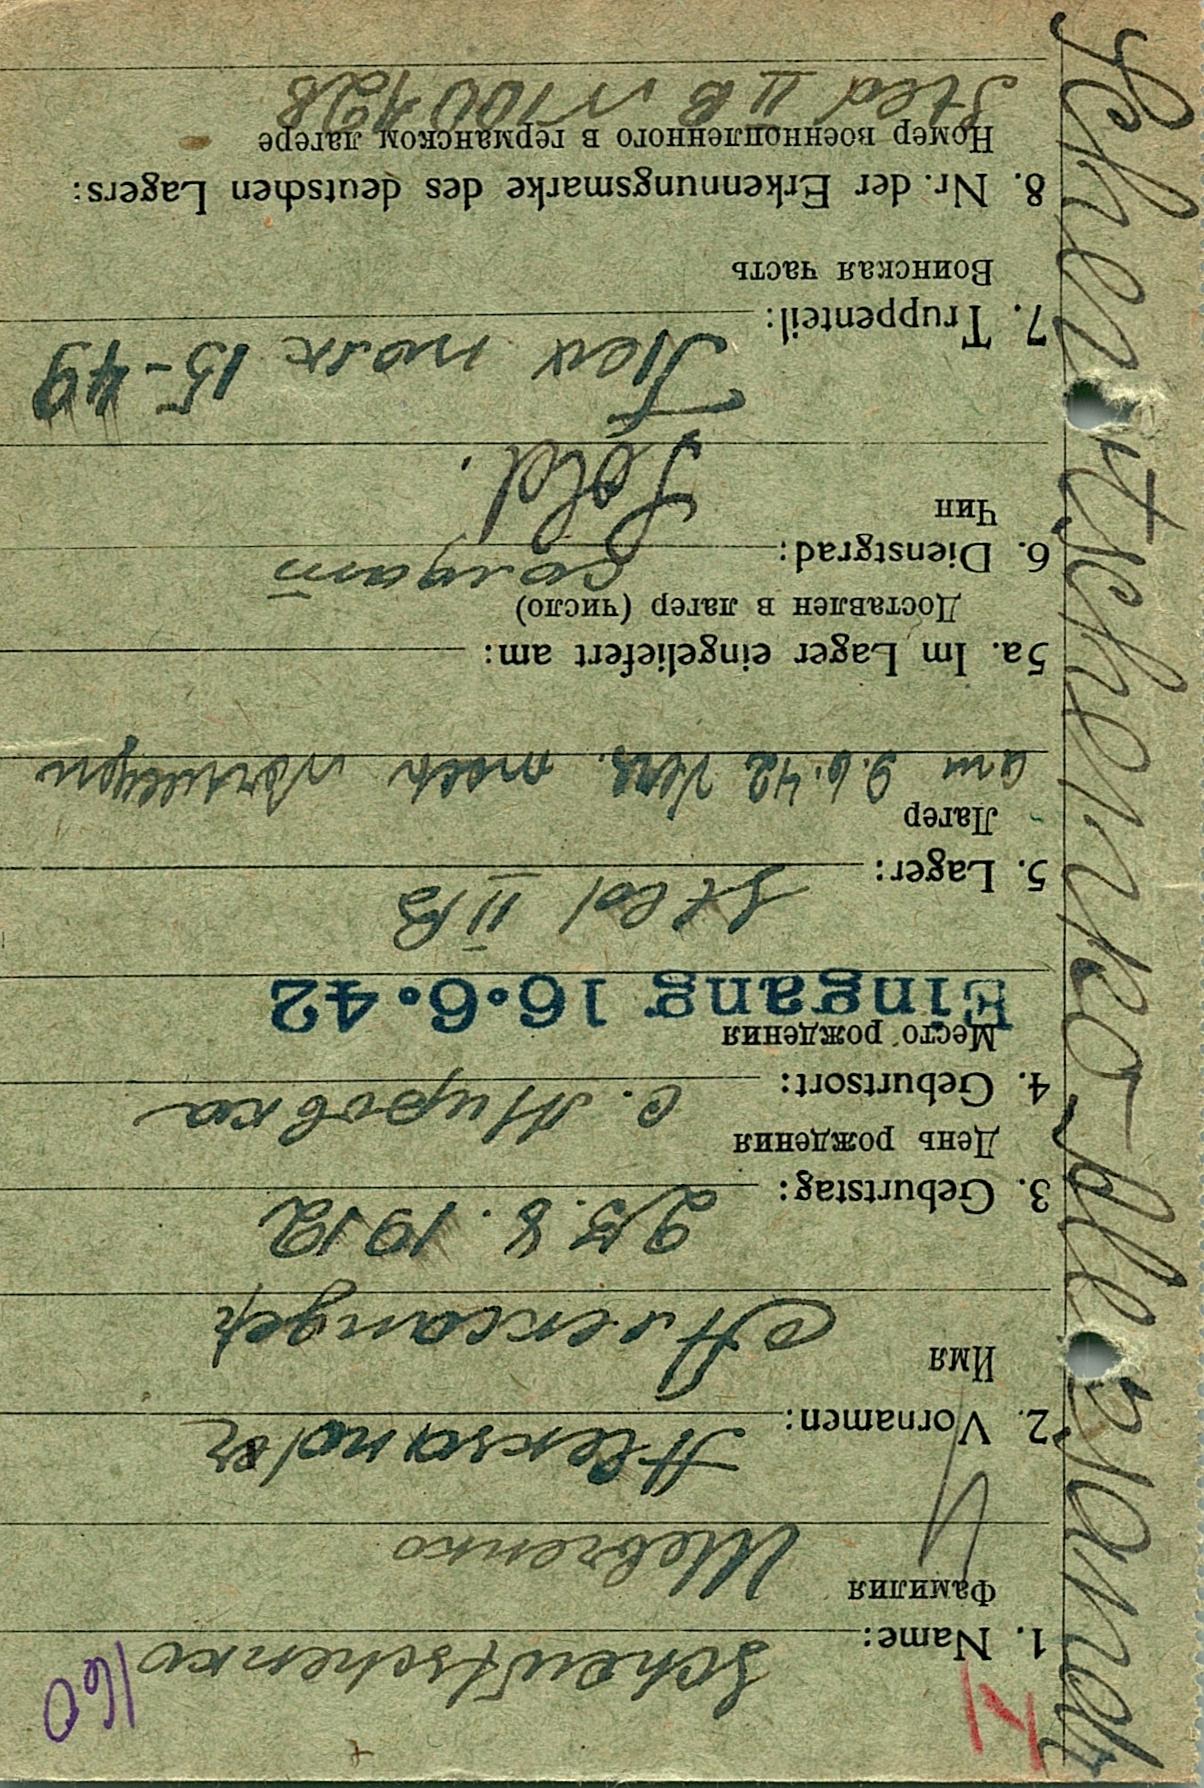 160
1. Name: Schewtschenko
Фамилия
Шевченко
2. Vornamen: Aleksander
Имя
Александр
3. Geburtstag: 25.8.1912
День рождения
4. Geburtsort: с. Мировка
Место рождения
Eingang 16.6.42
5. Lager: Stal II B
Лагер
am 9.6.42 Vers. nach Norwegen
5a. Im Lager eingeliefert am:
Доставлен в лагер (число)
6. Dienstgrad: солдат
Чин
Sold.
7. Truppenteil: полк 15-49
Воинская часть
8. Nr. der Erkennungsmarke des deutschen Lagers:
Номер военнопленного в германском лагере
Stal II B № 100428
Schewtschenko Alexandr